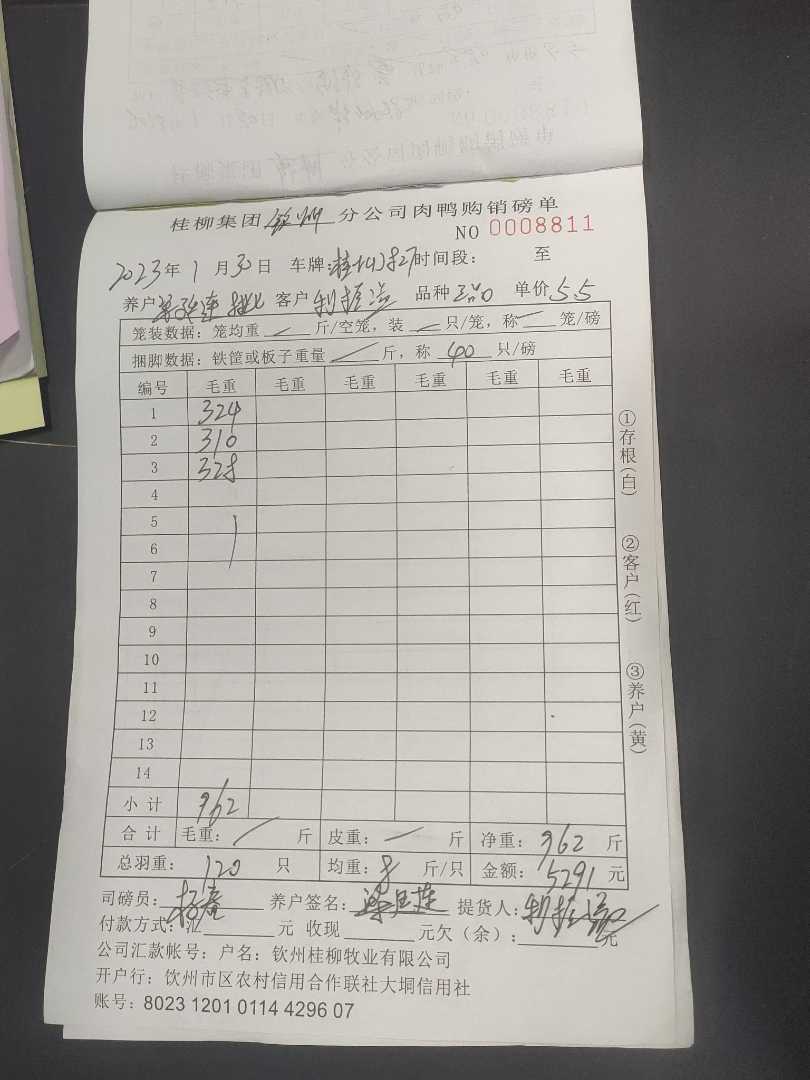 桂柳集团 钦州 分公司肉鸭购销磅单
NO 0008811
2023年 1月 30日 车牌: 时间段: 至
养户 客户 利 品种 单价 5.5
笼装数据: 笼均重 / 斤/空笼, 装 / 只/笼, 称 / 笼/磅
捆脚数据: 铁筐或板子重量 / 斤, 称 40 只/磅
编号 毛重 毛重 毛重 毛重 毛重 毛重
1 324
2 310
3 328
4
5
6
7
8
9
10
11
12
13
14
小计 962
合计 毛重: / 斤 皮重: / 斤 净重: 962 斤
总羽重: 120 只 均重: 8 斤/只 金额: 5291 元
司磅员: 养户签名: 提货人: 利
付款方式: 汇 元 收现 元欠(余): 元
公司汇款帐号: 户名: 钦州桂柳牧业有限公司
开户行: 钦州市区农村信用合作联社大垌信用社
账号: 8023 1201 0114 4296 07
①存根(白)
②客户(红)
③养户(黄)